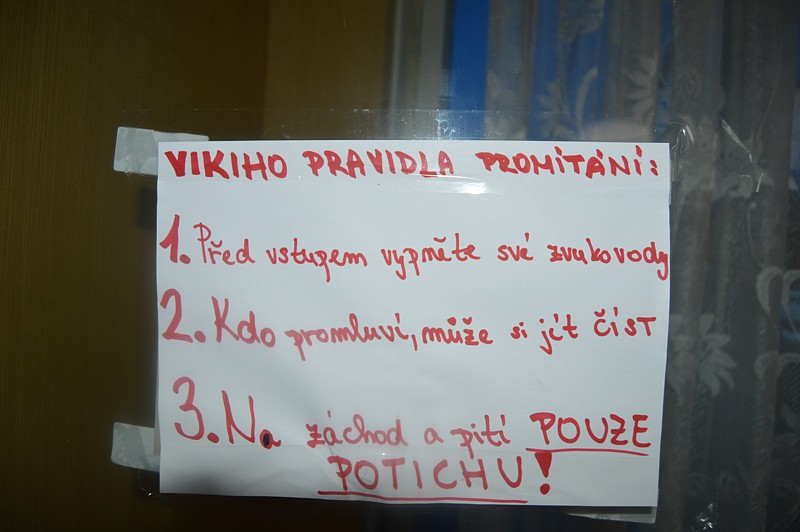 VIKIHO PRAVIDLA PROMÍTÁNÍ:
1. Před vstupem vypněte své zvukovody
2. Kdo promluví, může si jít číst
3. Na záchod a pití POUZE
POTICHU!